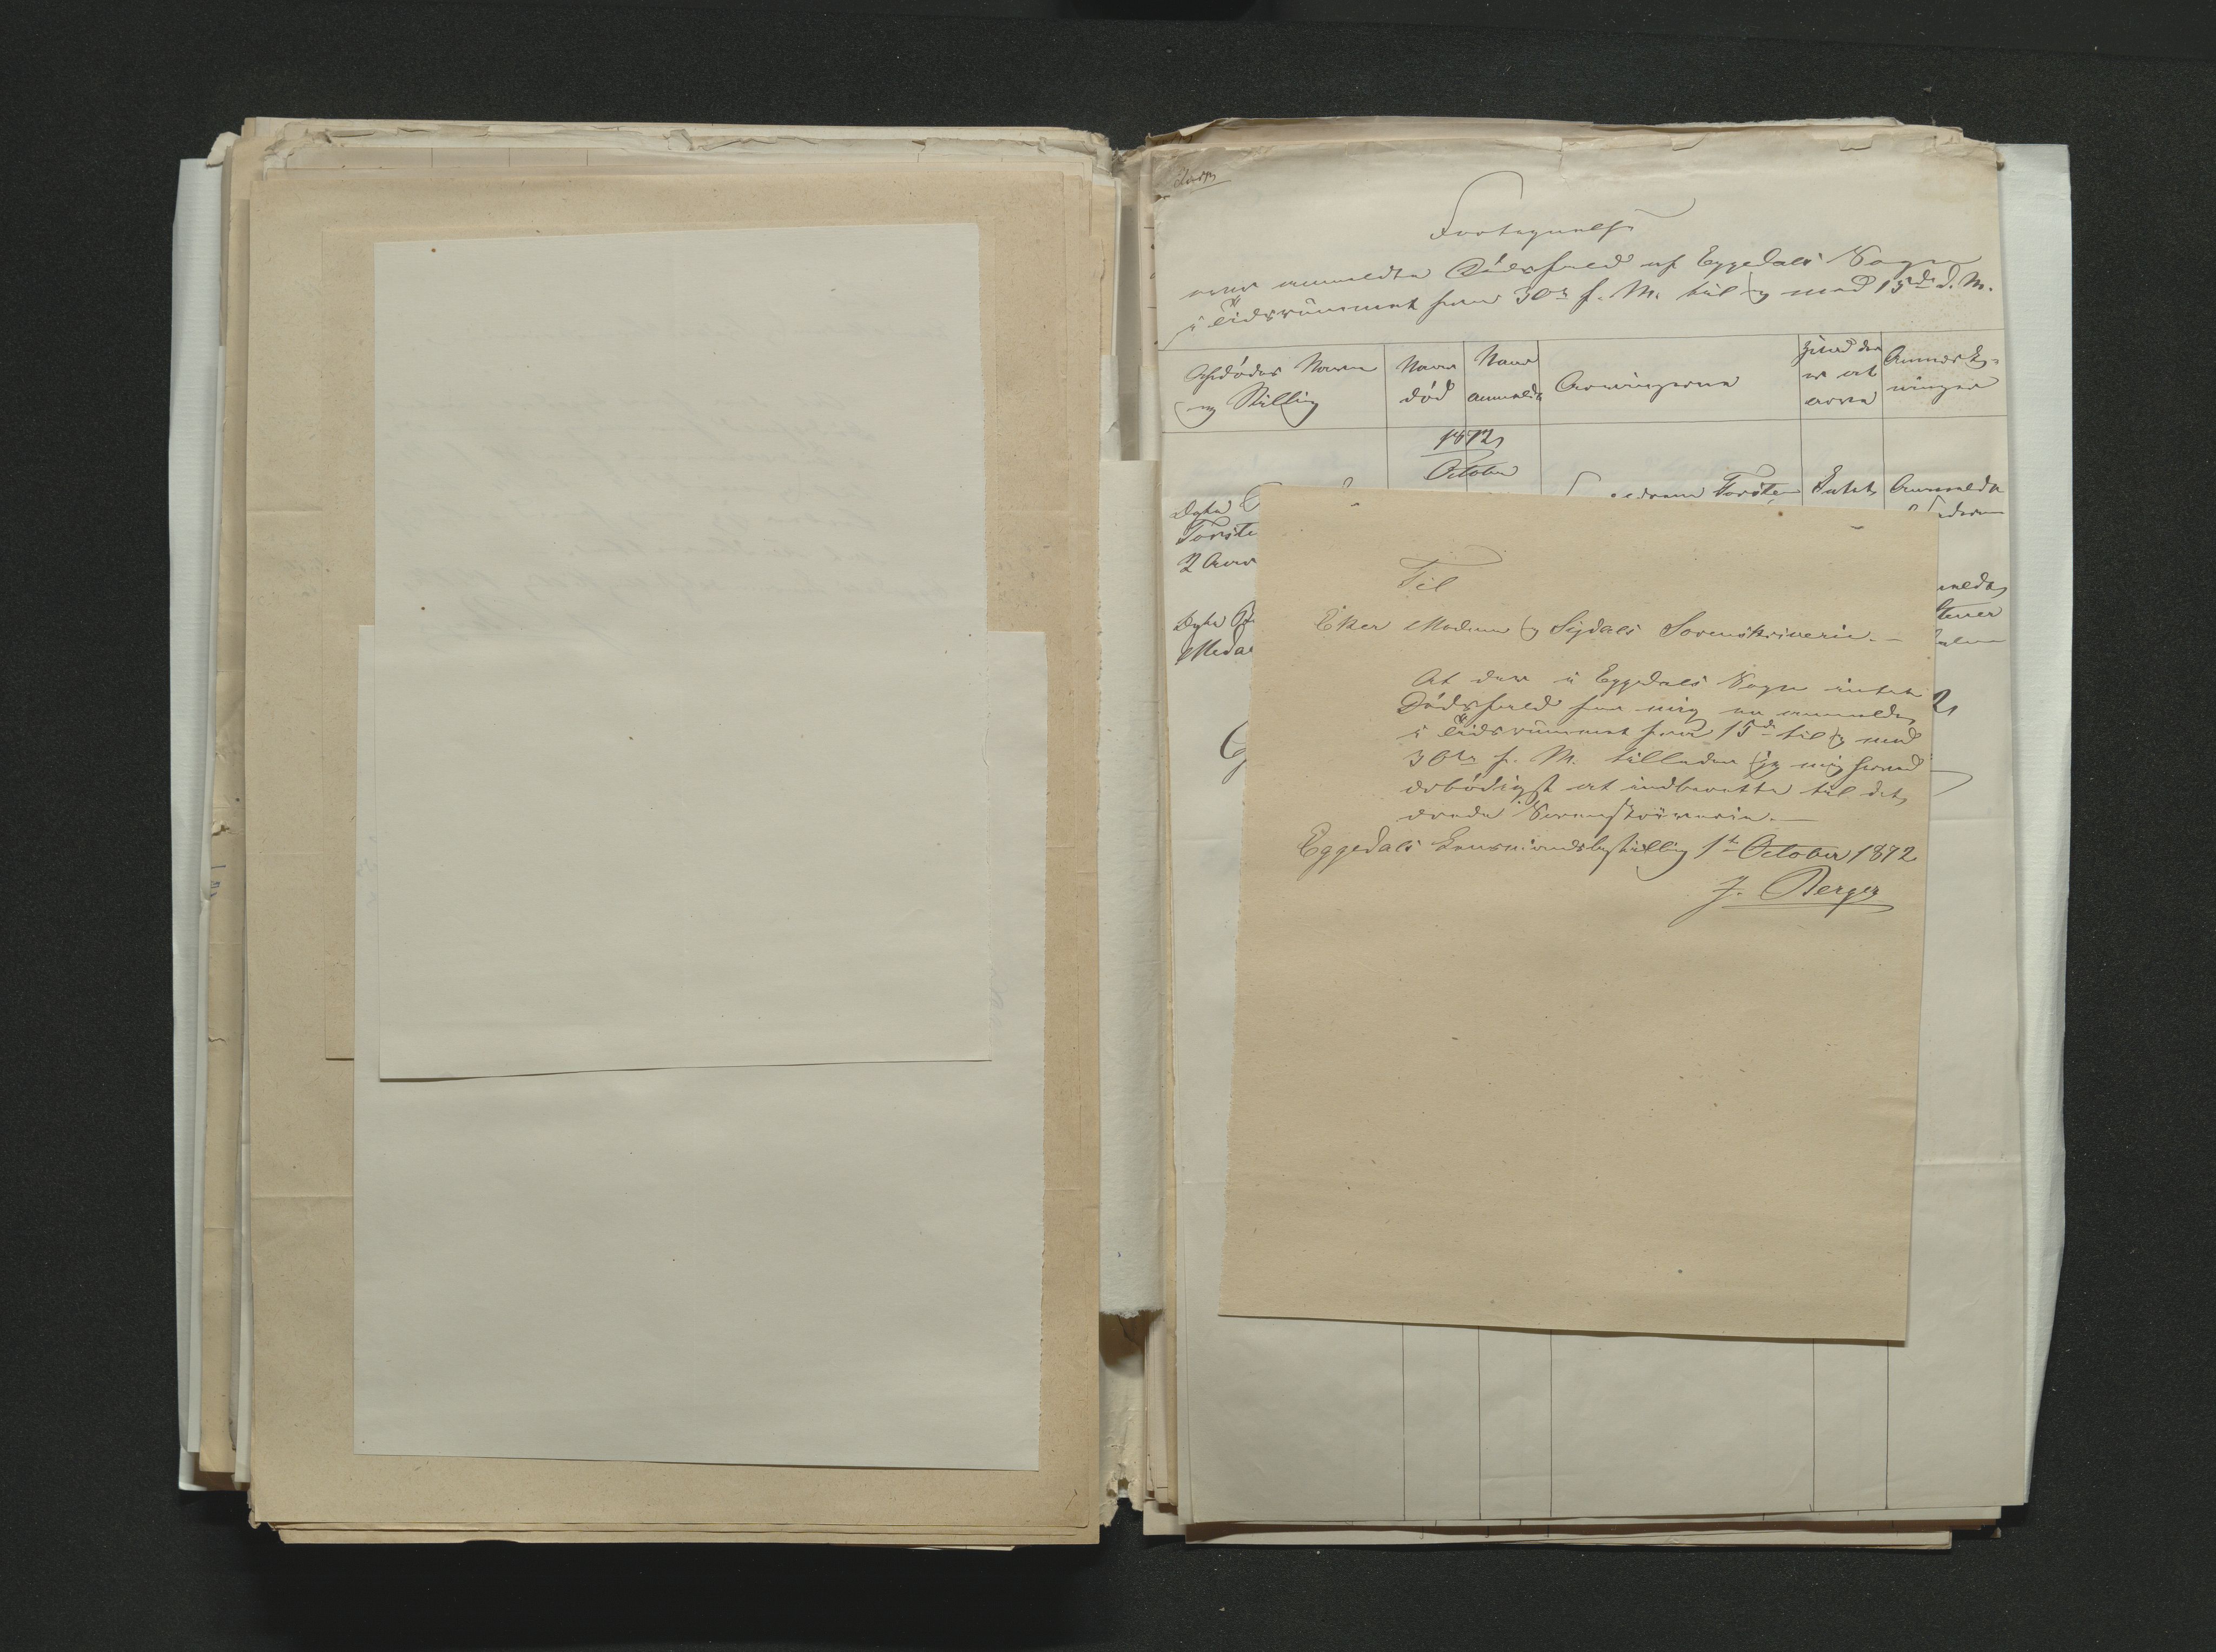 Fortegnelse
over anmeldte Dødsfald af Eggedals Sogn
i Tidsrummet fra 30te f. M. til og med 15de d. M.
Afdødes Navn
og Stilling
Naar
død
Naar
anmeldt
Arvingerne
Hvad der
er at
arve
Anmærk-
ninger
1872
October
Torsten
Intet
Anmeldt
Torste
2 Aar
Til
Eker Modum og Sigdals Sorenskriveri.—
At der i Eggedals Sogn intet
Dødsfald for mig er anmeldt
i Tidsrummet fra 15de til og med
30te f. M. tillader jeg mig herved
ærbødigst at indberette til det
ærede Sorenskriveri.—
Eggedals Lensmandsbestilling 1ste October 1872
J. Berger